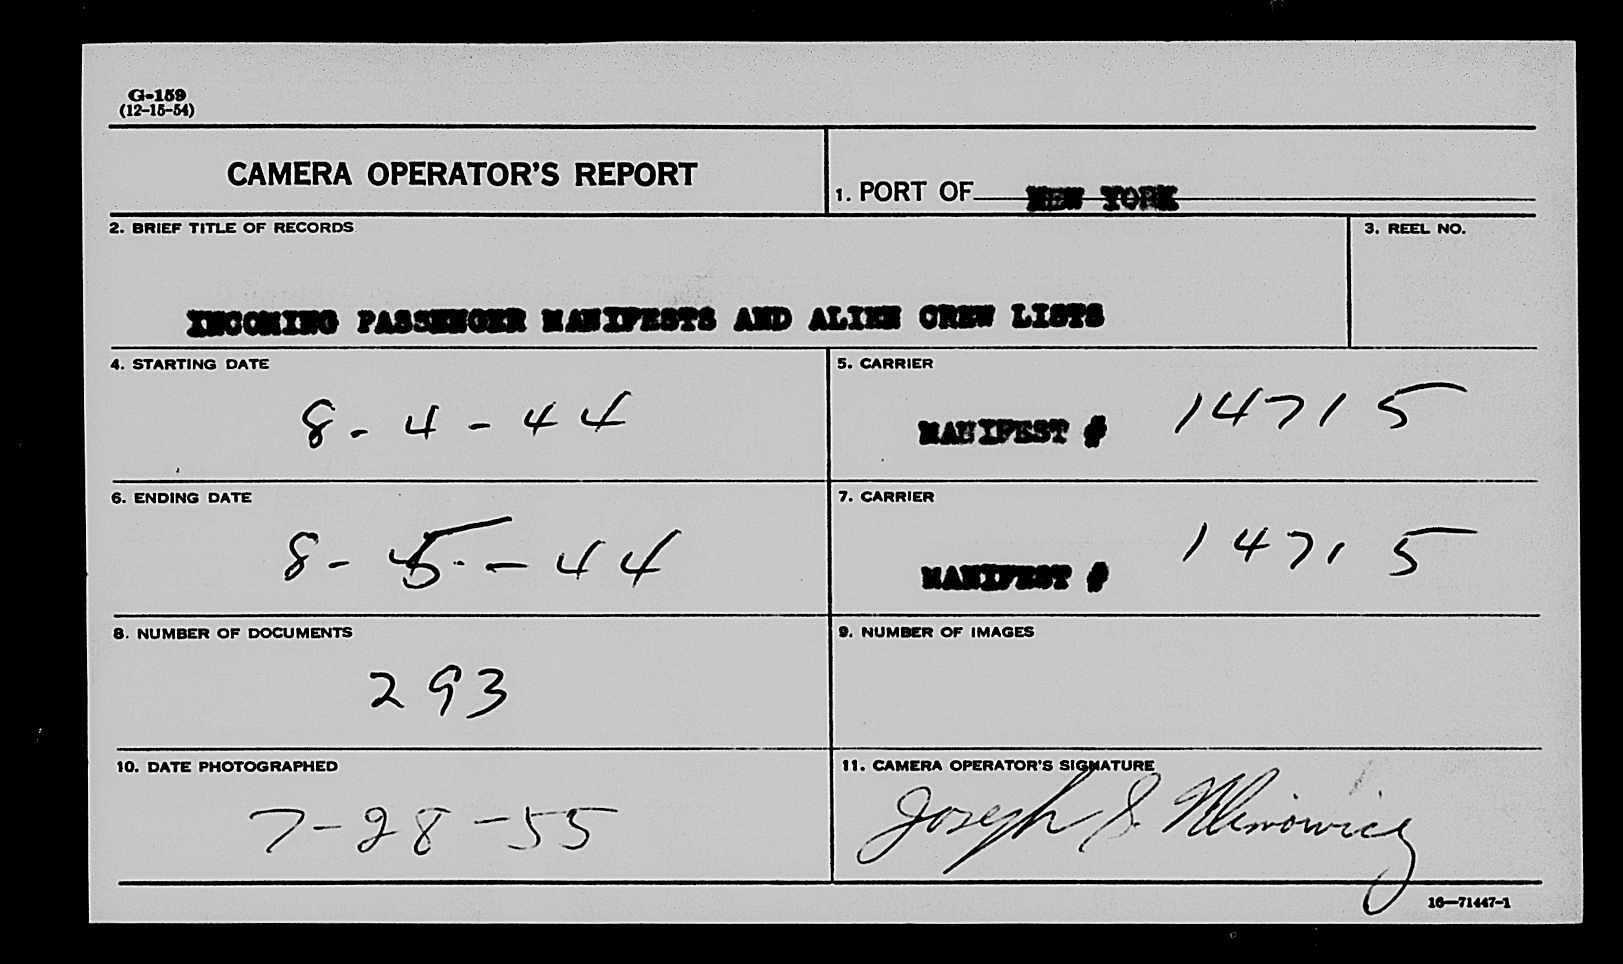 G-159
(12-15-54)
CAMERA OPERATOR'S REPORT
1. PORT OF NEW YORK
2. BRIEF TITLE OF RECORDS
3. REEL NO.
INCOMING PASSENGER MANIFESTS AND ALIEN CREW LISTS
4. STARTING DATE
5. CARRIER
8-4-44
MANIFEST # 14715
6. ENDING DATE
7. CARRIER
8-5-44
MANIFEST # 14715
8. NUMBER OF DOCUMENTS
9. NUMBER OF IMAGES
293
10. DATE PHOTOGRAPHED
11. CAMERA OPERATOR'S SIGNATURE
7-28-55
Joseph S.
16—71447-1